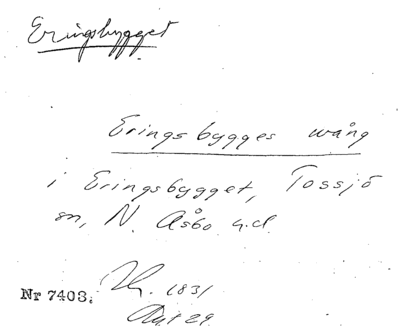 Eringsbygget
Eringsbygges wång
i Eringsbygget, Tossjö
sn, N. Åsbo hd.
1831
Nr 7403.
Akt 29